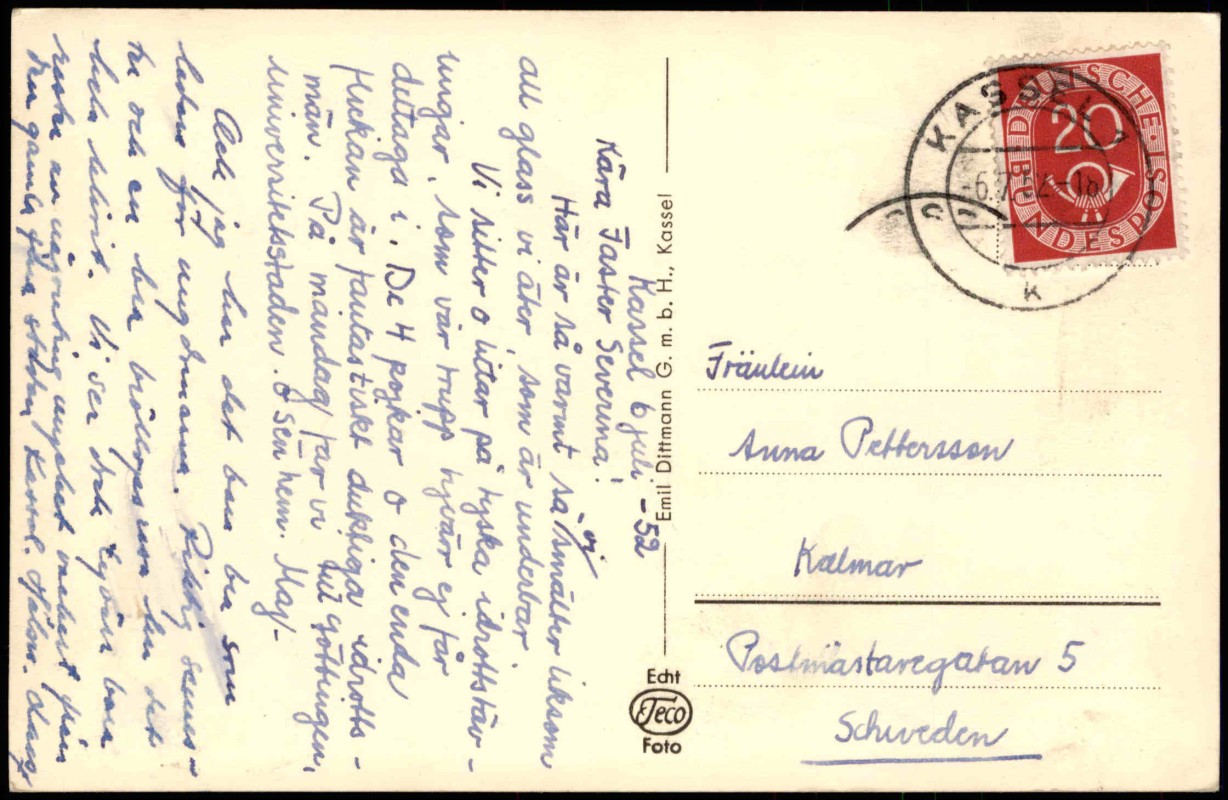 Kassel 6 juli -52
Kära Faster Severina!
Här är så varmt så vi smälter liksom
all glass vi äter som är underbar.
Vi sitter o tittar på tyska idrottstäv-
lingar, som vår trupp tyvärr ej får
deltaga i. De 4 pojkar o den enda
flickan är fantastiskt duktiga idrotts-
män. På måndag far vi till Göttingen,
Universitetsstaden. O sen hem. Maj-
Ack jag har det bara bra som
ledare för ungdomarna. Riktig semes-
ter och en bra
hela tiden. Vi ser dock tyvärr bara
den gamla fina staden Kassel.
Emil Dittmann G. m. b. H., Kassel
Echt
Teco
Foto
KASSEL 7
-6.7.52.-18
k
DEUTSCHE BUNDESPOST
20
Fräulein
Anna Pettersson
Kalmar
Postmästaregatan 5
Schweden